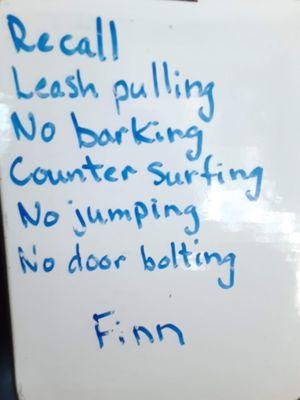 Recall
Leash pulling
No barking
Counter Surfing
No jumping
No door bolting
Finn